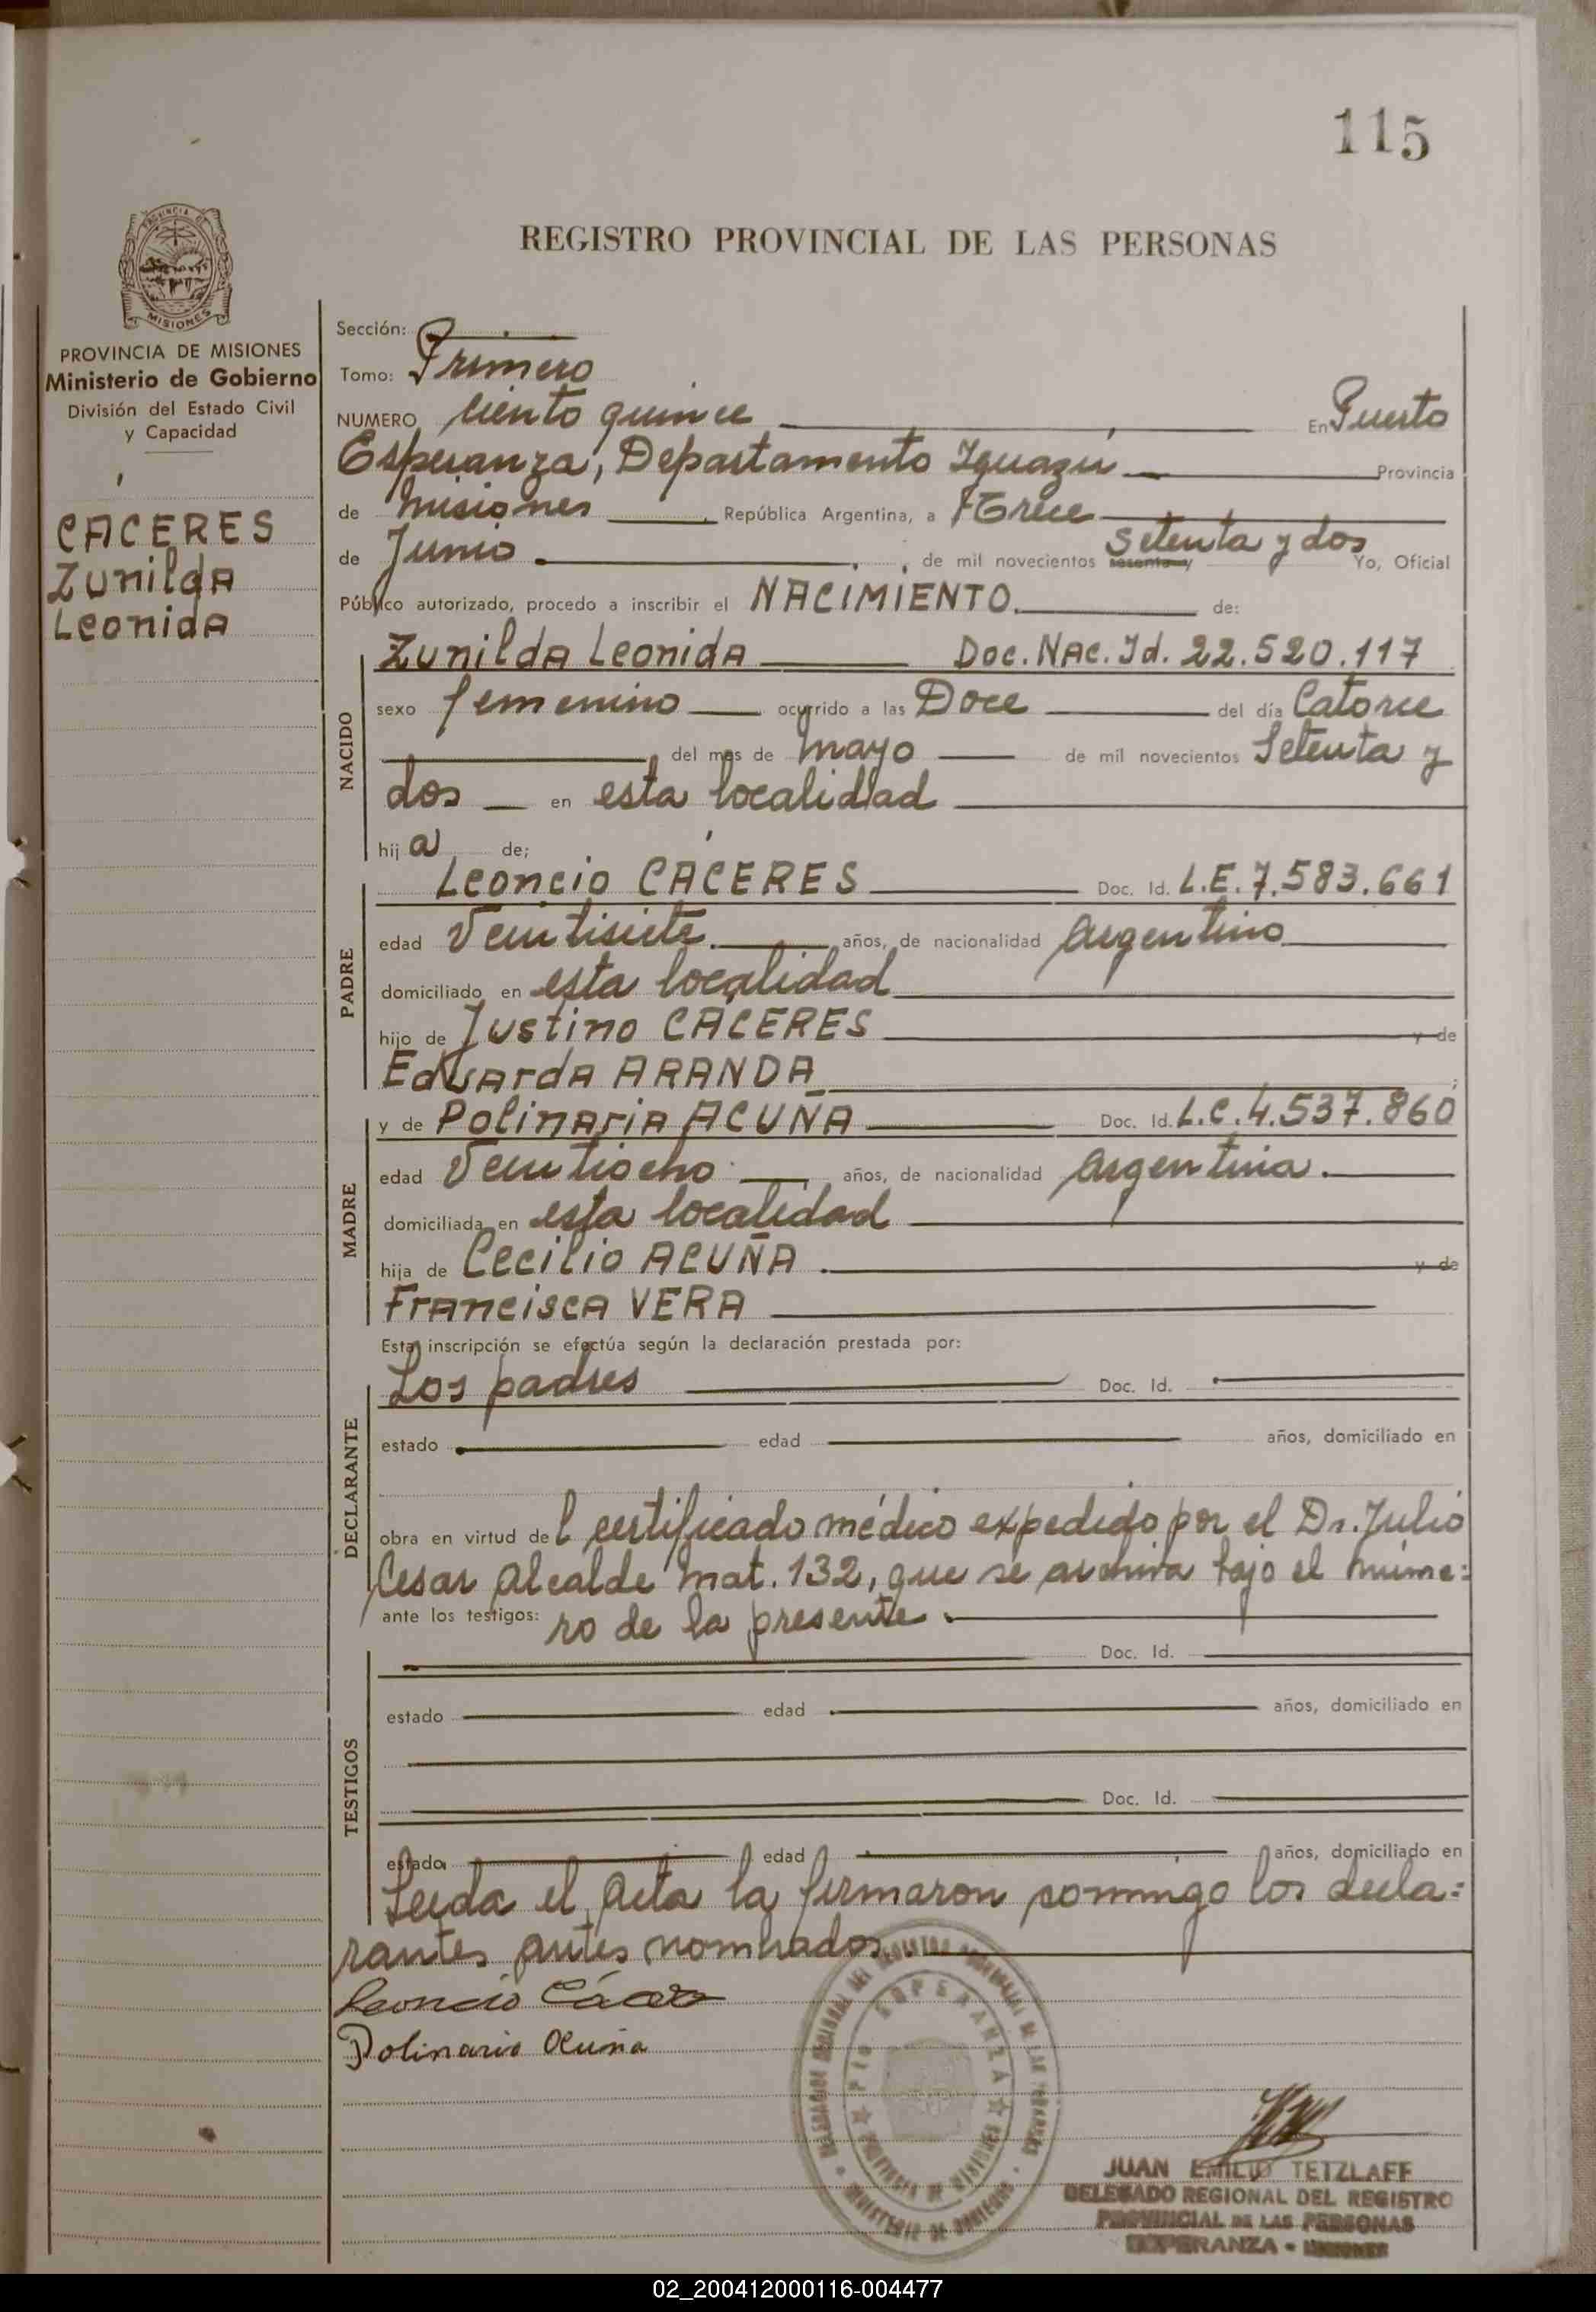 115
PROVINCIA DE
MISIONES
REGISTRO PROVINCIAL DE LAS PERSONAS
PROVINCIA DE MISIONES
Ministerio de Gobierno
División del Estado Civil
y Capacidad
CACERES
Zunilda
Leonida
Sección:
Tomo: Primero
NUMERO ciento quince En Puerto
Esperanza, Departamento Iguazú Provincia
de Misiones República Argentina, a Trece
de Junio de mil novecientos sesenta y Setenta y dos Yo, Oficial
Público autorizado, procedo a inscribir el NACIMIENTO de:
NACIDO
Zunilda Leonida Doc. Nac. Id. 22.520.117
sexo femenino ocurrido a las Doce del día Catorce
del mes de mayo de mil novecientos Setenta y
dos en esta localidad
hija de;
PADRE
Leoncio CACERES Doc. Id. L.E. 7.583.661
edad Veintisiete años, de nacionalidad Argentino
domiciliado en esta localidad
hijo de Justino CACERES y de
Eduarda ARANDA
MADRE
y de Polinaria ACUÑA Doc. Id. L.C. 4.537.860
edad Veintiocho años, de nacionalidad Argentina.
domiciliada en esta localidad
hija de Cecilio ACUÑA y de
Francisca VERA
Esta inscripción se efectúa según la declaración prestada por:
DECLARANTE
Los padres Doc. Id.
estado edad años, domiciliado en
obra en virtud del certificado médico expedido por el Dr. Julio
Cesar Alcalde Mat. 132, que se archiva bajo el núme=
ante los testigos: ro de la presente.
TESTIGOS
Doc. Id.
estado edad años, domiciliado en
Doc. Id.
estado edad años, domiciliado en
Leída el Acta la firmaron conmigo los decla=
rantes antes nombrados.
Leoncio Cáceres
Polinaria Acuña
JUAN EMILIO TETZLAFF
DELEGADO REGIONAL DEL REGISTRO
PROVINCIAL DE LAS PERSONAS
ESPERANZA - MISIONES
02_200412000116-004477